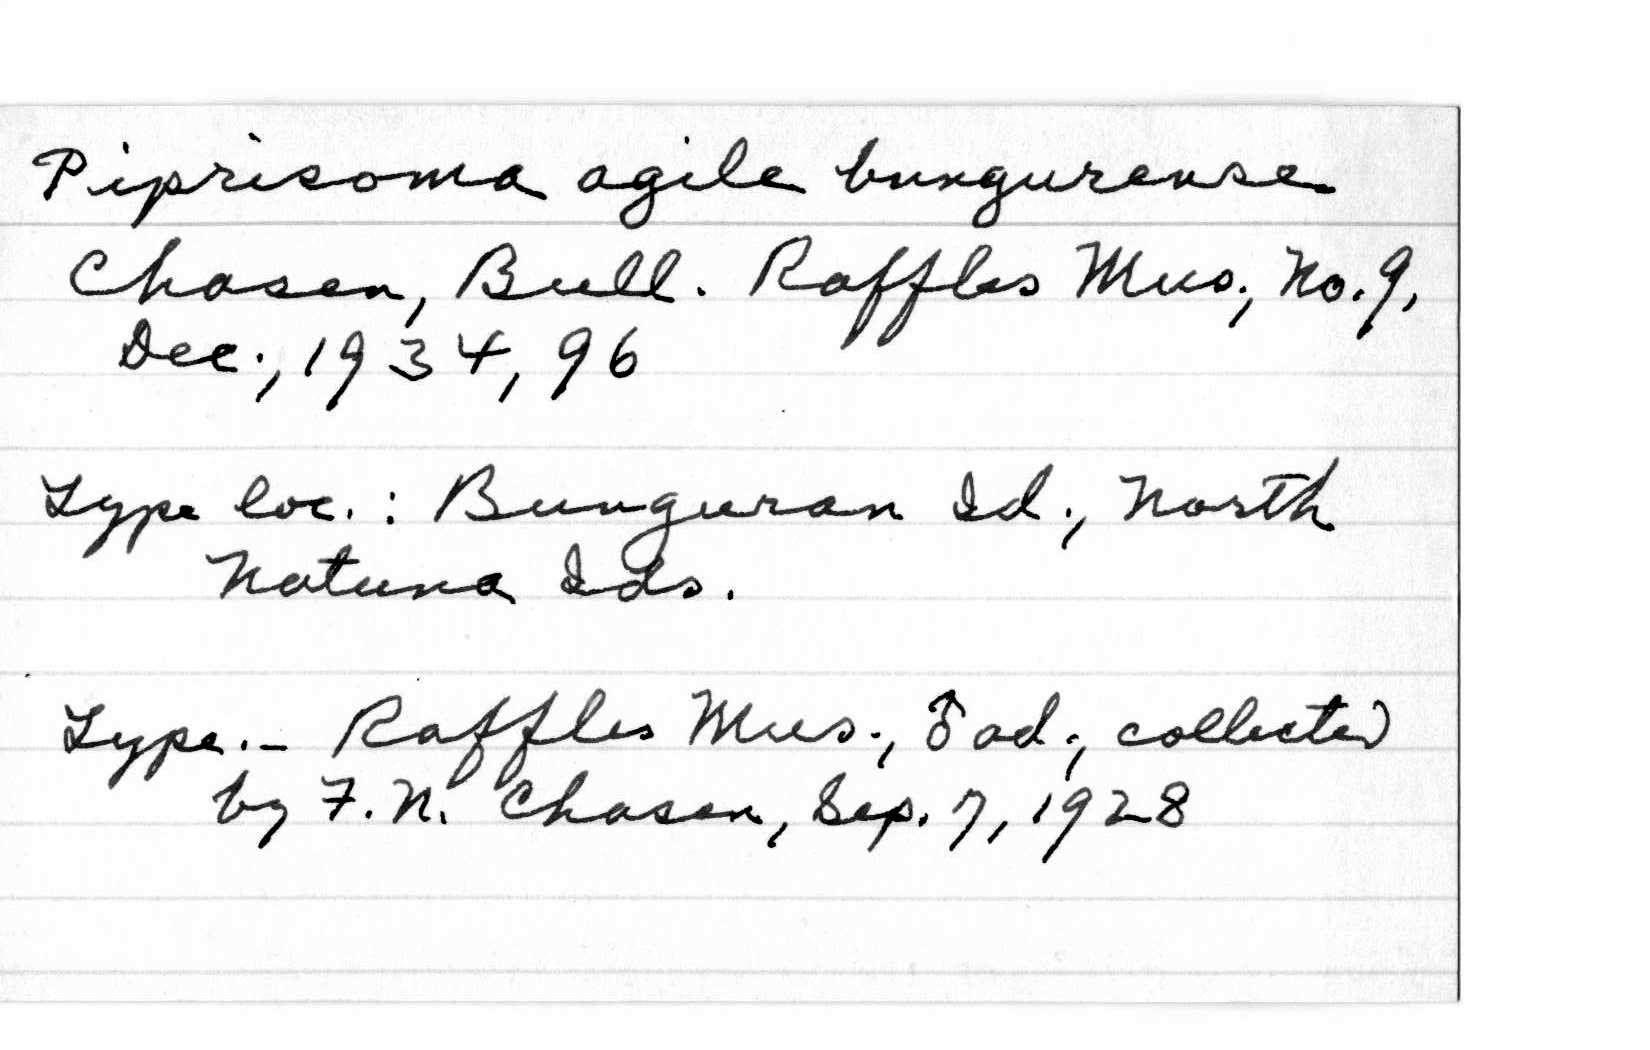 Piprisoma agile bungurense
Chasen, Bull. Raffles Mus., No. 9,
Dec., 1934, 96
Type loc. : Bunguran Id., North
Natuna Ids.
Type.– Raffles Mus., ♂ ad., collected
by F. N. Chasen, Sep. 7, 1928